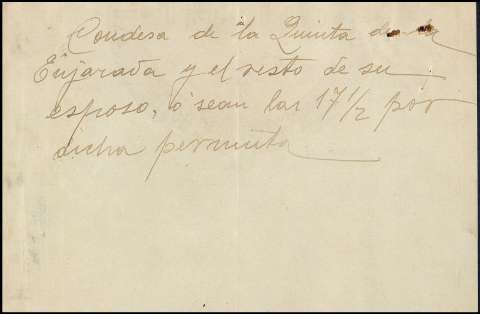 Condesa de la Quinta de la
Enjarada y el resto de su
esposo, ó sean las 17 1/2 por
dicha permuta